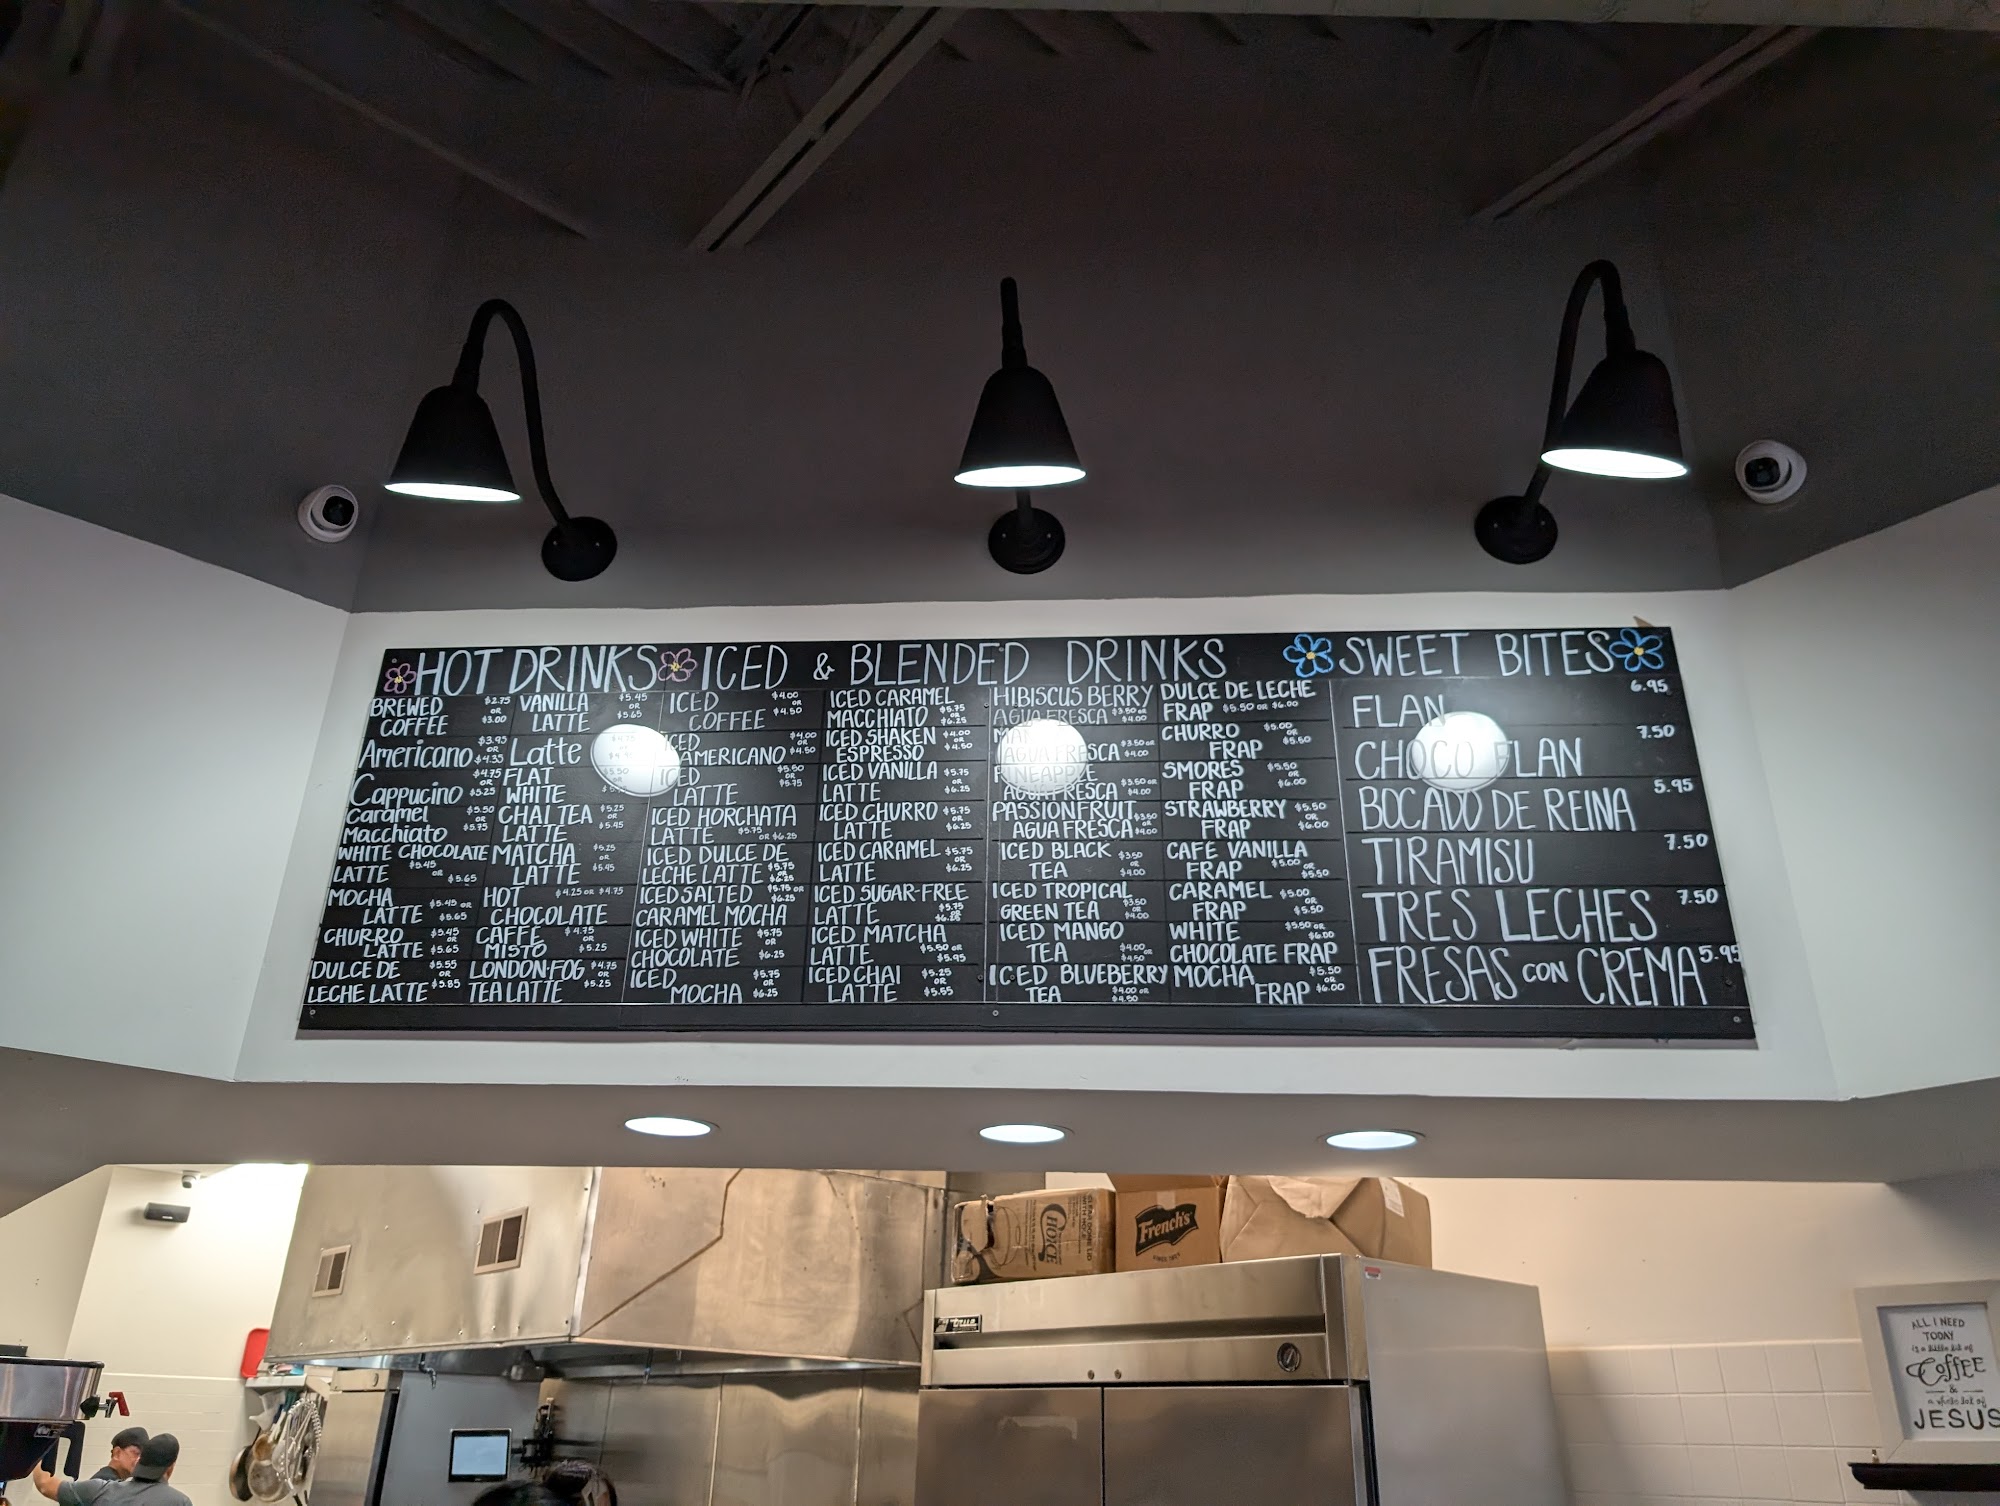 HOT DRINKS
BREWED $2.75
OR
COFFEE $3.00
Americano $3.95
OR
$4.35
Cappucino $4.75
OR
$5.25
Caramel $5.50
OR
Macchiato $5.75
WHITE CHOCOLATE
LATTE $5.45
OR
$5.65
MOCHA
LATTE $5.45 OR
$5.65
CHURRO $5.45
OR
LATTE $5.65
DULCE DE $5.55
OR
LECHE LATTE $5.85
VANILLA $5.45
OR
LATTE $5.65
Latte
FLAT $5.50
WHITE
CHAI TEA $5.25
OR
LATTE $5.45
MATCHA $5.25
OR
LATTE $5.45
HOT $4.25 OR $4.75
CHOCOLATE
CAFFE $4.75
OR
MISTO $5.25
LONDON FOG $4.75
OR
TEA LATTE $5.25
ICED & BLENDED DRINKS
ICED $4.00
OR
COFFEE $4.50
ICED $4.00
OR
AMERICANO $4.50
ICED $5.50
OR
LATTE $5.75
ICED HORCHATA
LATTE $5.75 OR $6.25
ICED DULCE DE
LECHE LATTE $5.75
OR
$6.25
ICED SALTED $5.75 OR
$6.25
CARAMEL MOCHA
ICED WHITE $5.75
OR
CHOCOLATE $6.25
ICED $5.75
OR
MOCHA $6.25
ICED CARAMEL
MACCHIATO $5.75
OR
$6.25
ICED SHAKEN $4.00
OR
ESPRESSO $4.50
ICED VANILLA $5.75
OR
LATTE $6.25
ICED CHURRO $5.75
OR
LATTE $6.25
ICED CARAMEL $5.75
OR
LATTE $6.25
ICED SUGAR-FREE
LATTE $5.75
OR
$6.25
ICED MATCHA
LATTE $5.50 OR
$5.95
ICED CHAI $5.25
OR
LATTE $5.55
HIBISCUS BERRY
AGUA FRESCA $3.50 OR
$4.00
AGUA FRESCA $3.50 OR
$4.00
PINEAPPLE
AGUA FRESCA $3.50 OR
$4.00
PASSIONFRUIT
AGUA FRESCA $3.50
OR
$4.00
ICED BLACK $3.50
OR
TEA $4.00
ICED TROPICAL
GREEN TEA $3.50
OR
$4.00
ICED MANGO
TEA $4.00
OR
$4.50
ICED BLUEBERRY
TEA $4.00 OR
$4.50
DULCE DE LECHE
FRAP $5.50 OR $6.00
CHURRO $5.00
OR
FRAP $5.50
SMORES $5.50
OR
FRAP $6.00
STRAWBERRY $5.50
OR
FRAP $6.00
CAFE VANILLA
FRAP $5.00
OR
$5.50
CARAMEL $5.00
OR
FRAP $5.50
WHITE $5.50 OR
$6.00
CHOCOLATE FRAP
MOCHA $5.50
OR
FRAP $6.00
SWEET BITES
FLAN 6.95
CHOCO FLAN 7.50
BOCADO DE REINA 5.95
TIRAMISU 7.50
TRES LECHES 7.50
FRESAS CON CREMA 5.95
CHOICE
French's
true
ALL I NEED
TODAY
is a little bit of
Coffee
&
a whole lot of
JESUS